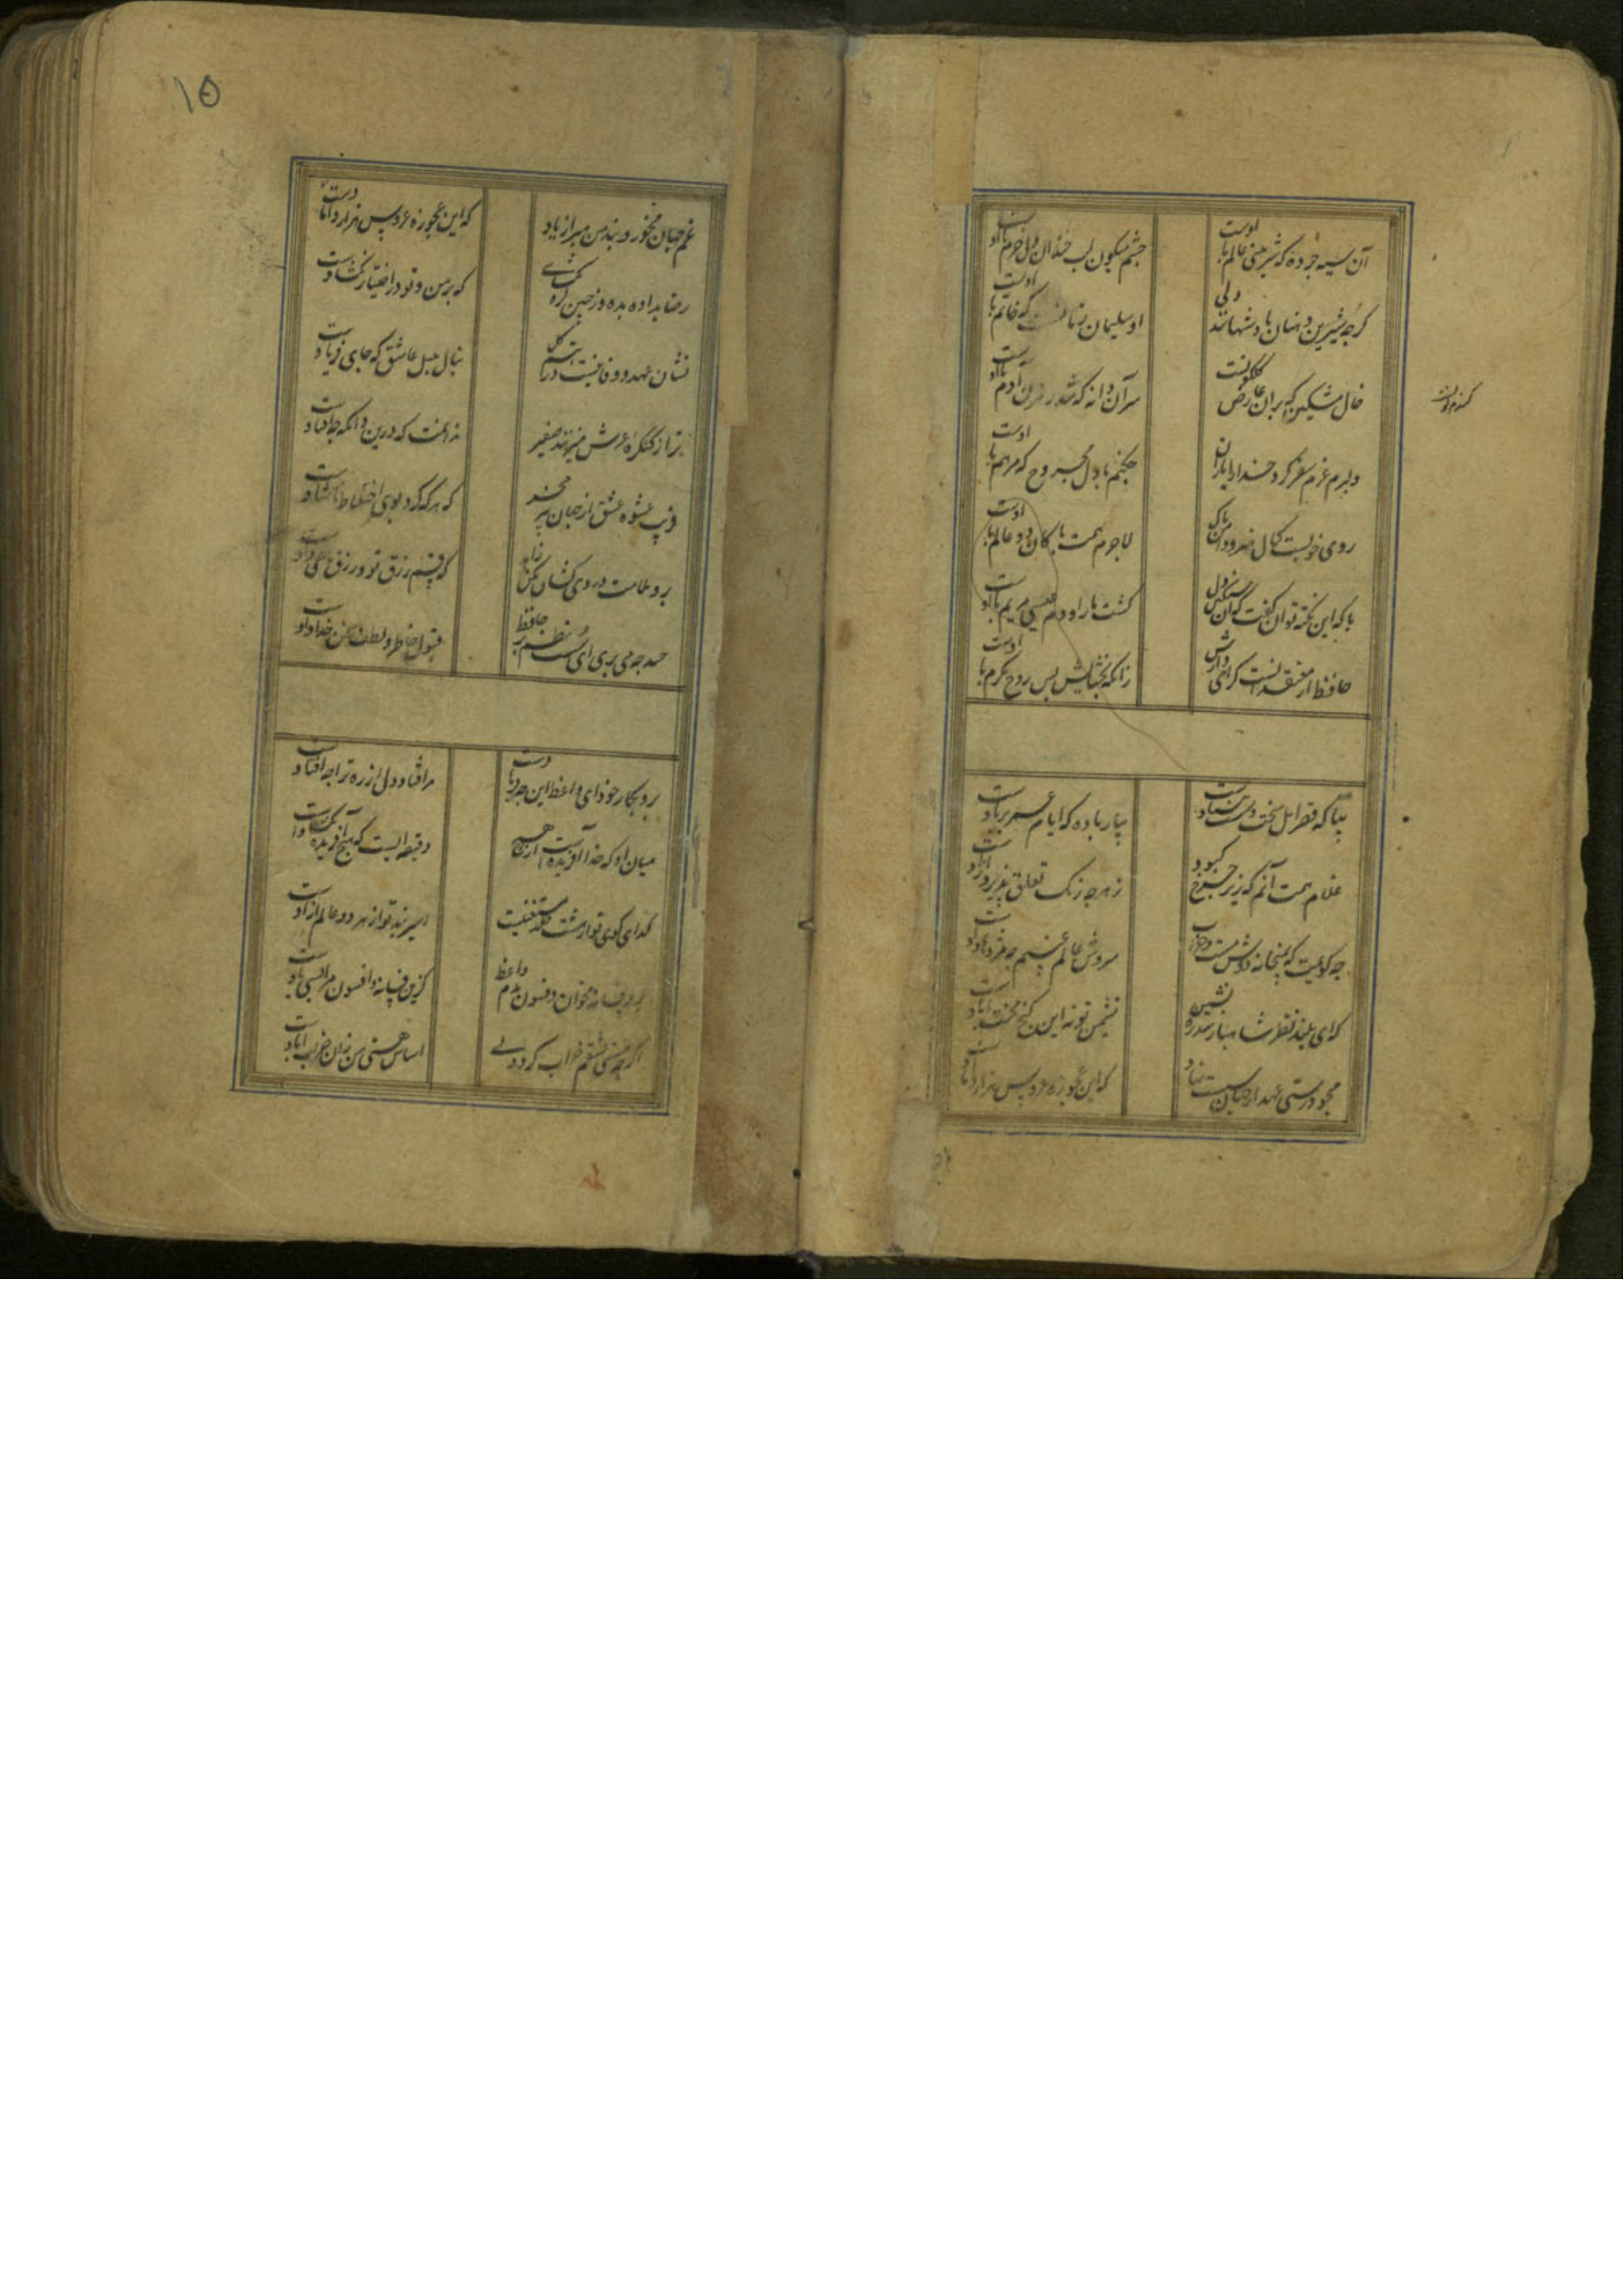 آن سیه چرده که شیرینی عالم با اوست
چشم میگون لب خندان دل خرم با اوست
کرچه شیرین دهنان پادشهانند ولی
او سلیمان زمانست که خاتم با اوست
خال مشکین که بران عارض کلکونست
سر آن دانه که شد رهزن آدم با اوست
دلبرم عزم سفر کرد خدا را یاران
چکنم با دل مجروح که مرهم با اوست
روی خوبست کمال هنر و دامن پاک
لاجرم همت پاکان دو عالم با اوست
با که این نکته توان کفت که آن سنکین دل
کشت ما را و دم عیسی مریم با اوست
حافظ از معتقدانست کرامی دارش
زانکه بخشایش بس روح مکرم با اوست
بیا که قصر امل سخت سست بنیادست
بیار باده که ایام عمر بر بادست
غلام همت آنم که زیر چرخ کبود
ز هرچه رنک تعلق پذیرد آزادست
چه کویمت که بمیخانه دوش مست و خراب
سروش عالم غیبم چه مژدها دادست
که ای بلند نظر شاهباز سدره نشین
نشیمن تو نه این کنج محنت آبادست
مجو درستی عهد از جهان سست نهاد
که این عجوزه عروس هزار دامادست
۱۵
غم جهان مخور و پند من مبر از یاد
که این عجوزه عروس هزار دامادست
رضا بداده بده وز جبین کره بکشای
که بر من و تو در اختیار نکشادست
نشان عهد و وفا نیست در تبسم کل
بنال بلبل عاشق که جای فریادست
ترا ز کنکره عرش میزنند صفیر
ندانمت که درین دامکه چه افتادست
فریب عشوه عشق از جهان پیر مخر
که هر که کرد بوی اختلاط ناشادست
برو ملامت دردی کشان مکن زاهد
که قسم رزق تو و رزق ما همی دادست
حسد چه می بری ای سست نظم بر حافظ
قبول خاطر و لطف سخن خدادادست
برو بکار خود ای واعظ این چه فریادست
مرا فتاد دل از ره ترا چه افتادست
میان او که خدا آفریده است از هیچ
دقیقه ایست که هیچ آفریده نکشادست
کدای کوی تو از هشت خلد مستغنیست
اسیر بند تو از هر دو عالم آزادست
برو فسانه مخوان و فسون مدم واعظ
کزین فسانه و افسون مرا بسی یادست
اکرچه مستی عشقم خراب کرد ولی
اساس هستی من زان خراب آبادست